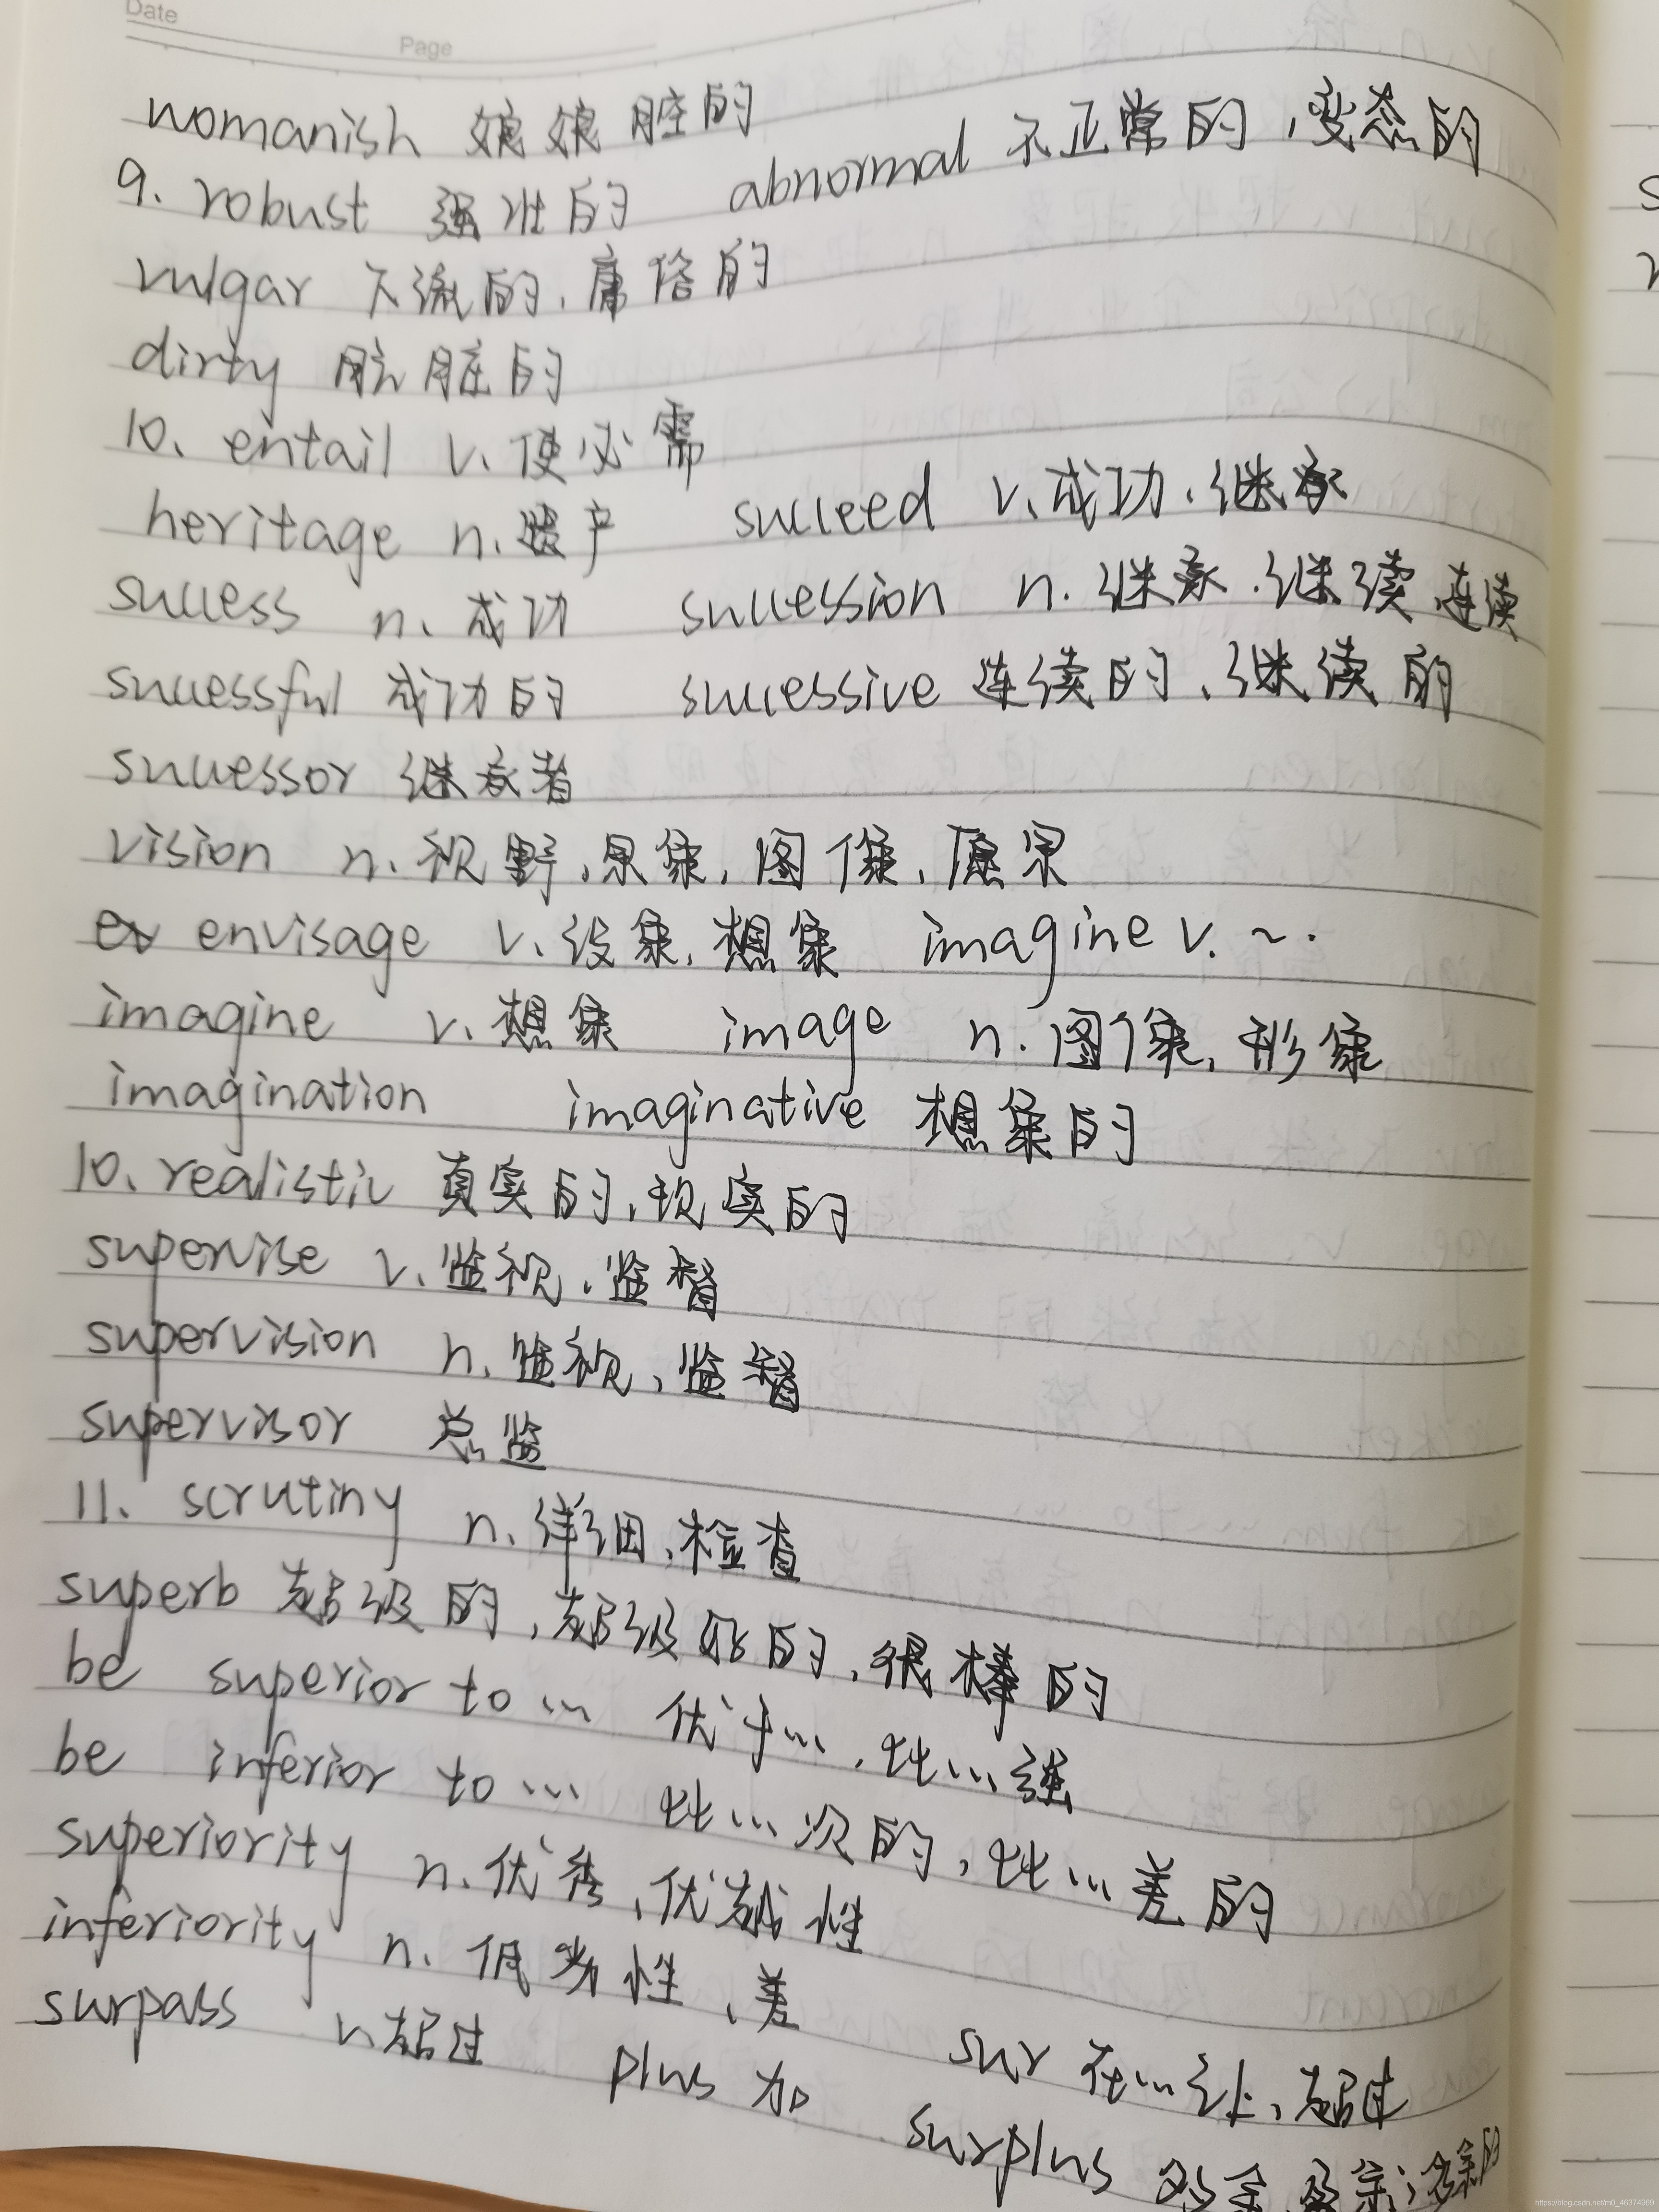 Date
Page
womanish 娘娘腔的
abnormal 不正常的,变态的
9. robust 强壮的
vulgar 下流的、庸俗的
dirty 肮脏的
10、entail v、使必需
heritage n、遗产 succeed v、成功、继承
success n、成功 succession n. 继承、继续 连续
successful 成功的 successive 连续的、继续的
successor 继承者
vision n、视野,景象,图像,愿景
envisage v、设象,想象 imagine v. ~.
imagine v、想象 image n. 图像,形象
imagination imaginative 想象的
10、realistic 真实的,现实的
supervise v、监视、监督
supervision n、监视、监督
supervisor 总监
11、scrutiny n、详细,检查
superb 超级的,超级好的,很棒的
be superior to … 优于…,比…强
be inferior to … 比…次的,比…差的
superiority n.优秀、优越性
inferiority n. 低劣性、差
surpass v、超过 sur 在…之上,超过
plus 加 surplus 多余
https://blog.csdn.net/m0_46374969